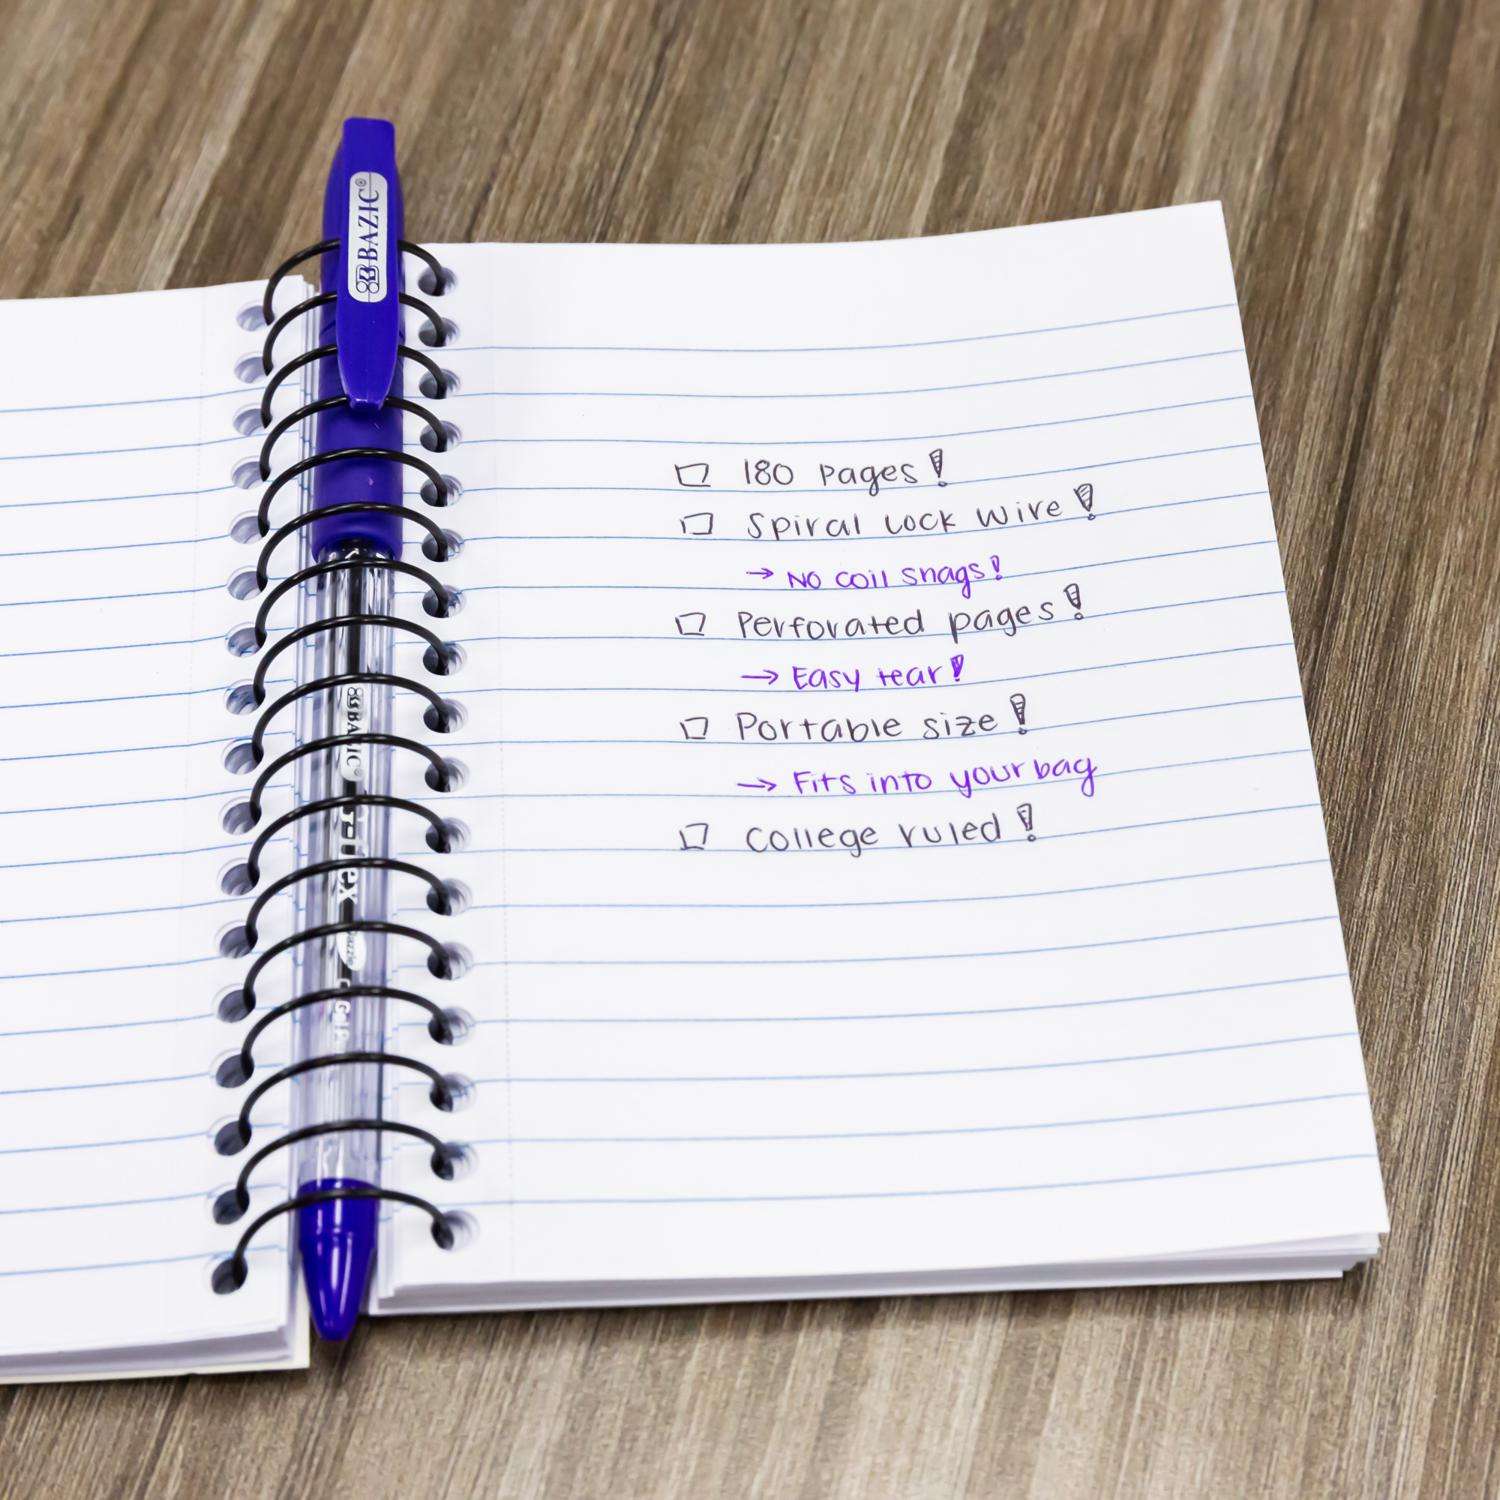 BAZIC®
BAZIC
180 pages!
Spiral Lock Wire!
→ No coil snags!
Perforated pages!
→ Easy tear!
Portable size!
→ Fits into your bag
College ruled!